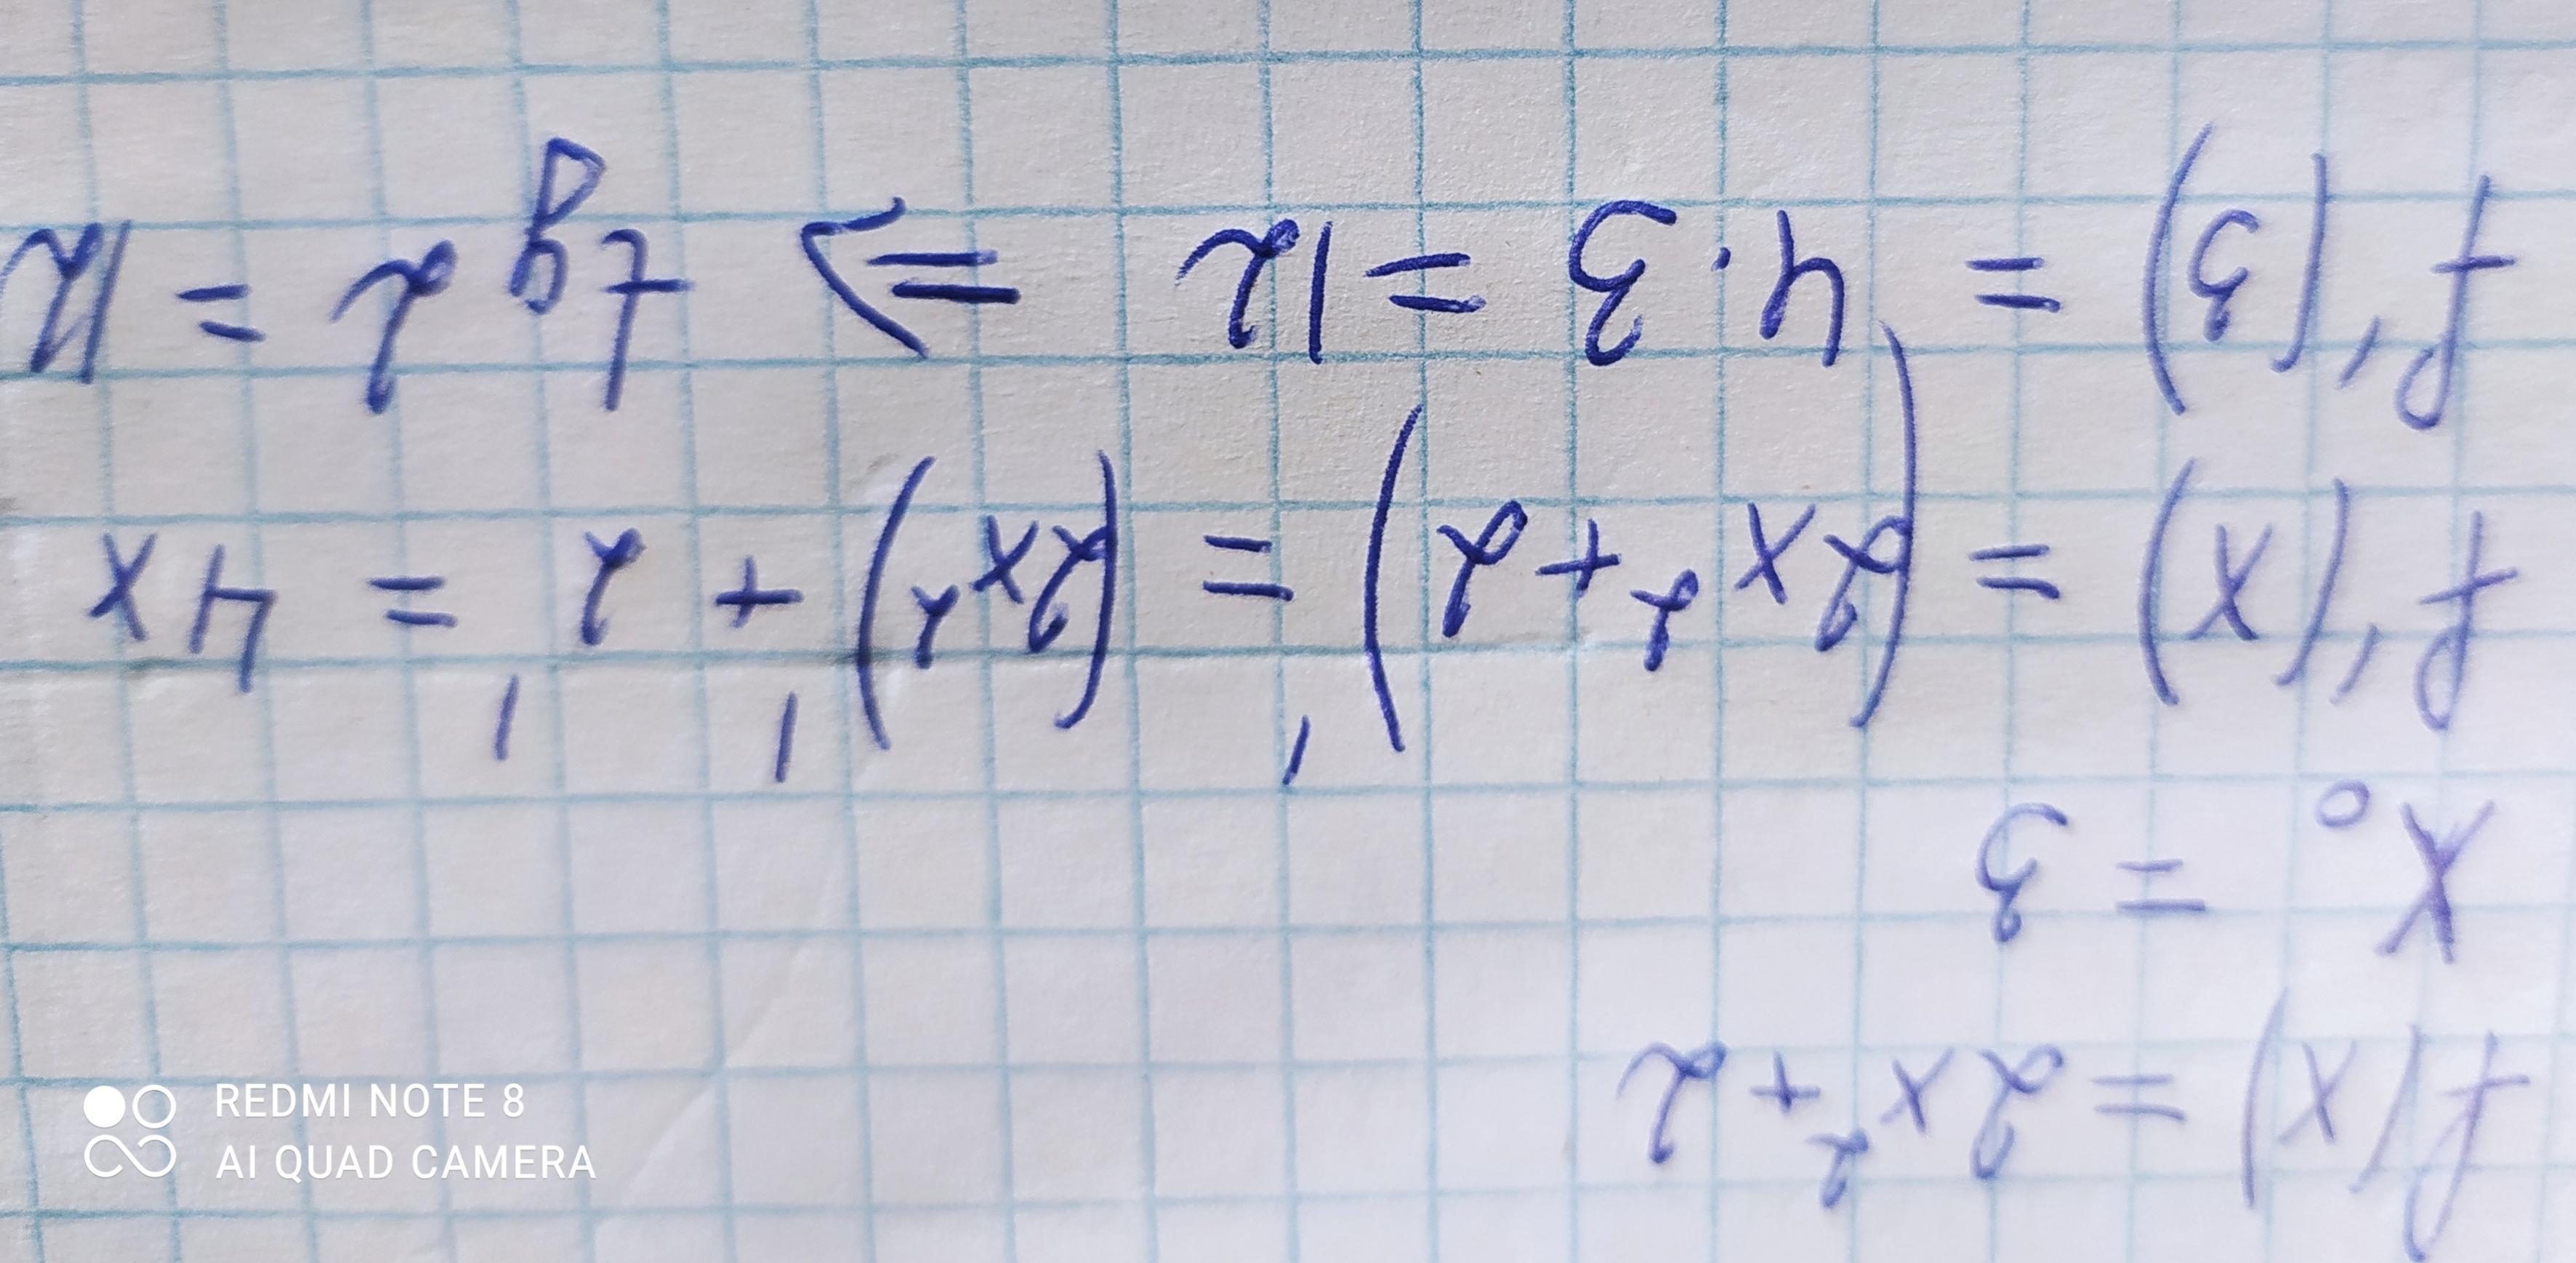 f(x) = 2x² + 2
x₀ = 3
f'(x) = (2x² + 2)' = (2x²)' + 2' = 4x
f'(3) = 4·3 = 12 => tg α = 12
REDMI NOTE 8
AI QUAD CAMERA